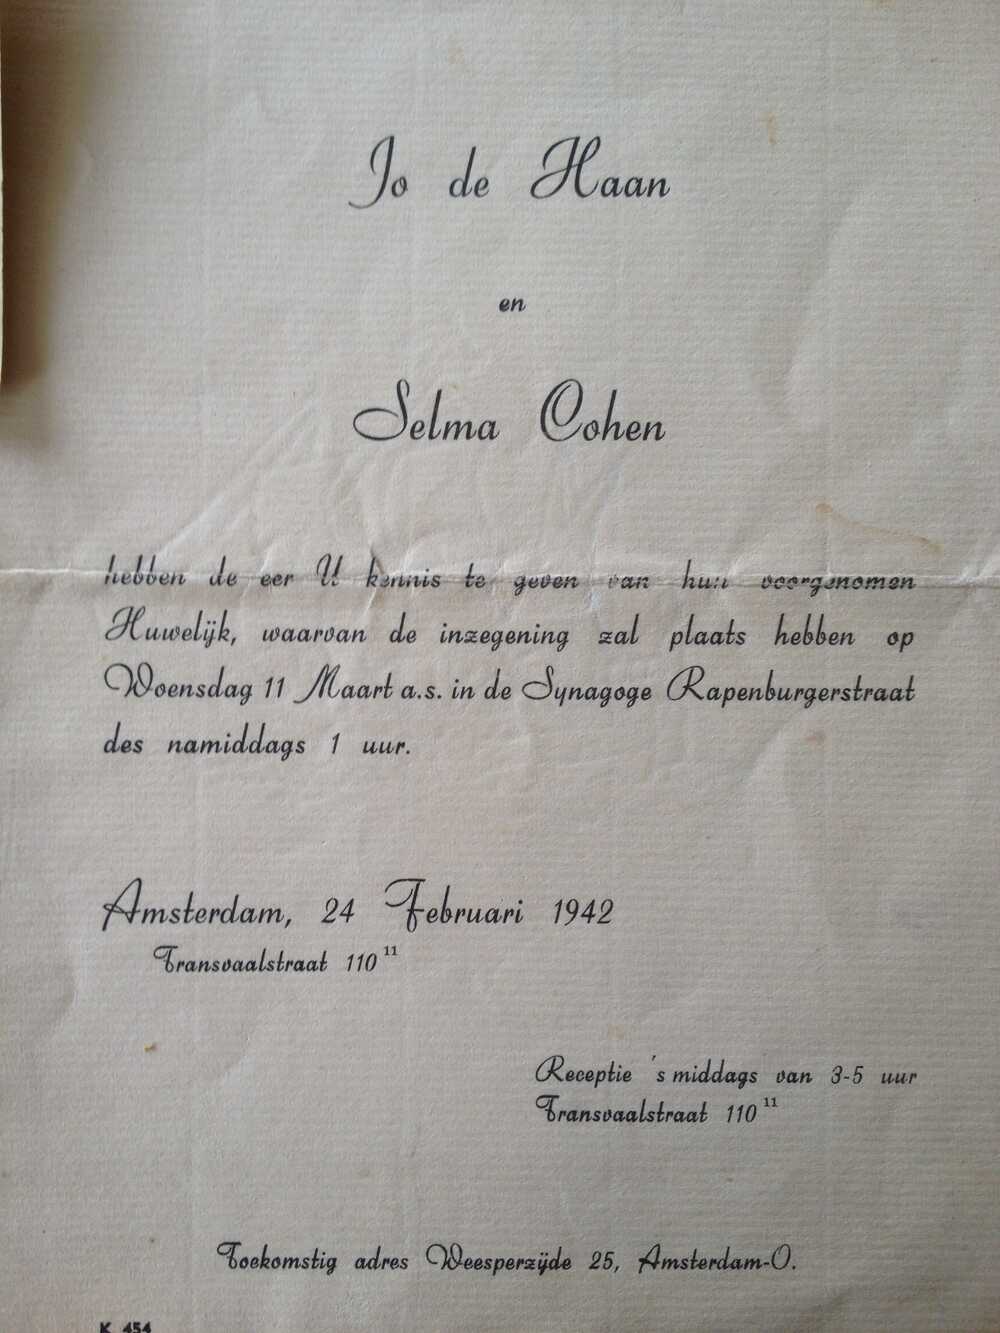 Jo de Haan
en
Selma Cohen
hebben de eer U kennis te geven van hun voorgenomen
Huwelijk, waarvan de inzegening zal plaats hebben op
Woensdag 11 Maart a.s. in de Synagoge Rapenburgerstraat
des namiddags 1 uur.
Amsterdam, 24 Februari 1942
Transvaalstraat 110 11
Receptie 's middags van 3-5 uur
Transvaalstraat 110 11
Toekomstig adres Weesperzijde 25, Amsterdam-O.
K 454